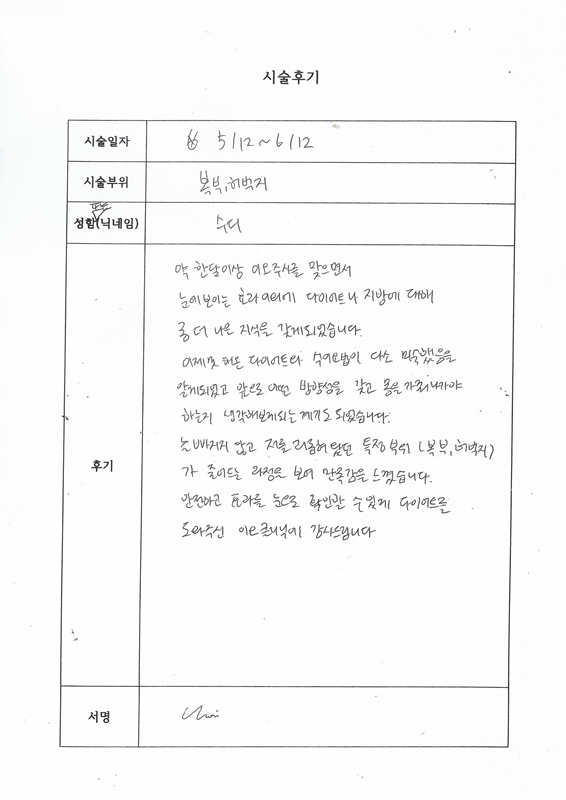 시술후기
시술일자 5/12~6/12
시술부위 복부, 허벅지
성함(닉네임) 또는 수디
후기
약 한달이상 이오주사를 맞으면서
눈에보이는 효과이외에 다이어트나 지방에 대해
좀 더 나은 지식을 갖게되었습니다.
이제껏 해온 다이어트와 식이요법이 다소 미숙했음을
알게되었고 앞으로 어떤 방향성을 갖고 몸을 가꿔나가야
하는지 생각해보게되는 계기도 되었습니다.
빠지지 않고 저를 괴롭혀왔던 특정 부위 (복부, 허벅지)
가 줄어드는 과정을 보며 만족감을 느꼈습니다.
안전하고 효과를 눈으로 확인할 수 있게 다이어트를
도와주신 클리닉에 감사드립니다
서명